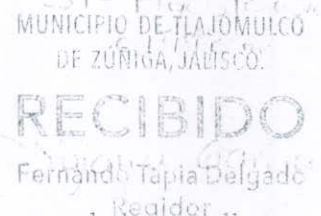 MUNICIPIO DE TLAJOMULCO
DE ZÚÑIGA, JALISCO.
RECIBIDO
Fernando Tapia Delgado
Regidor